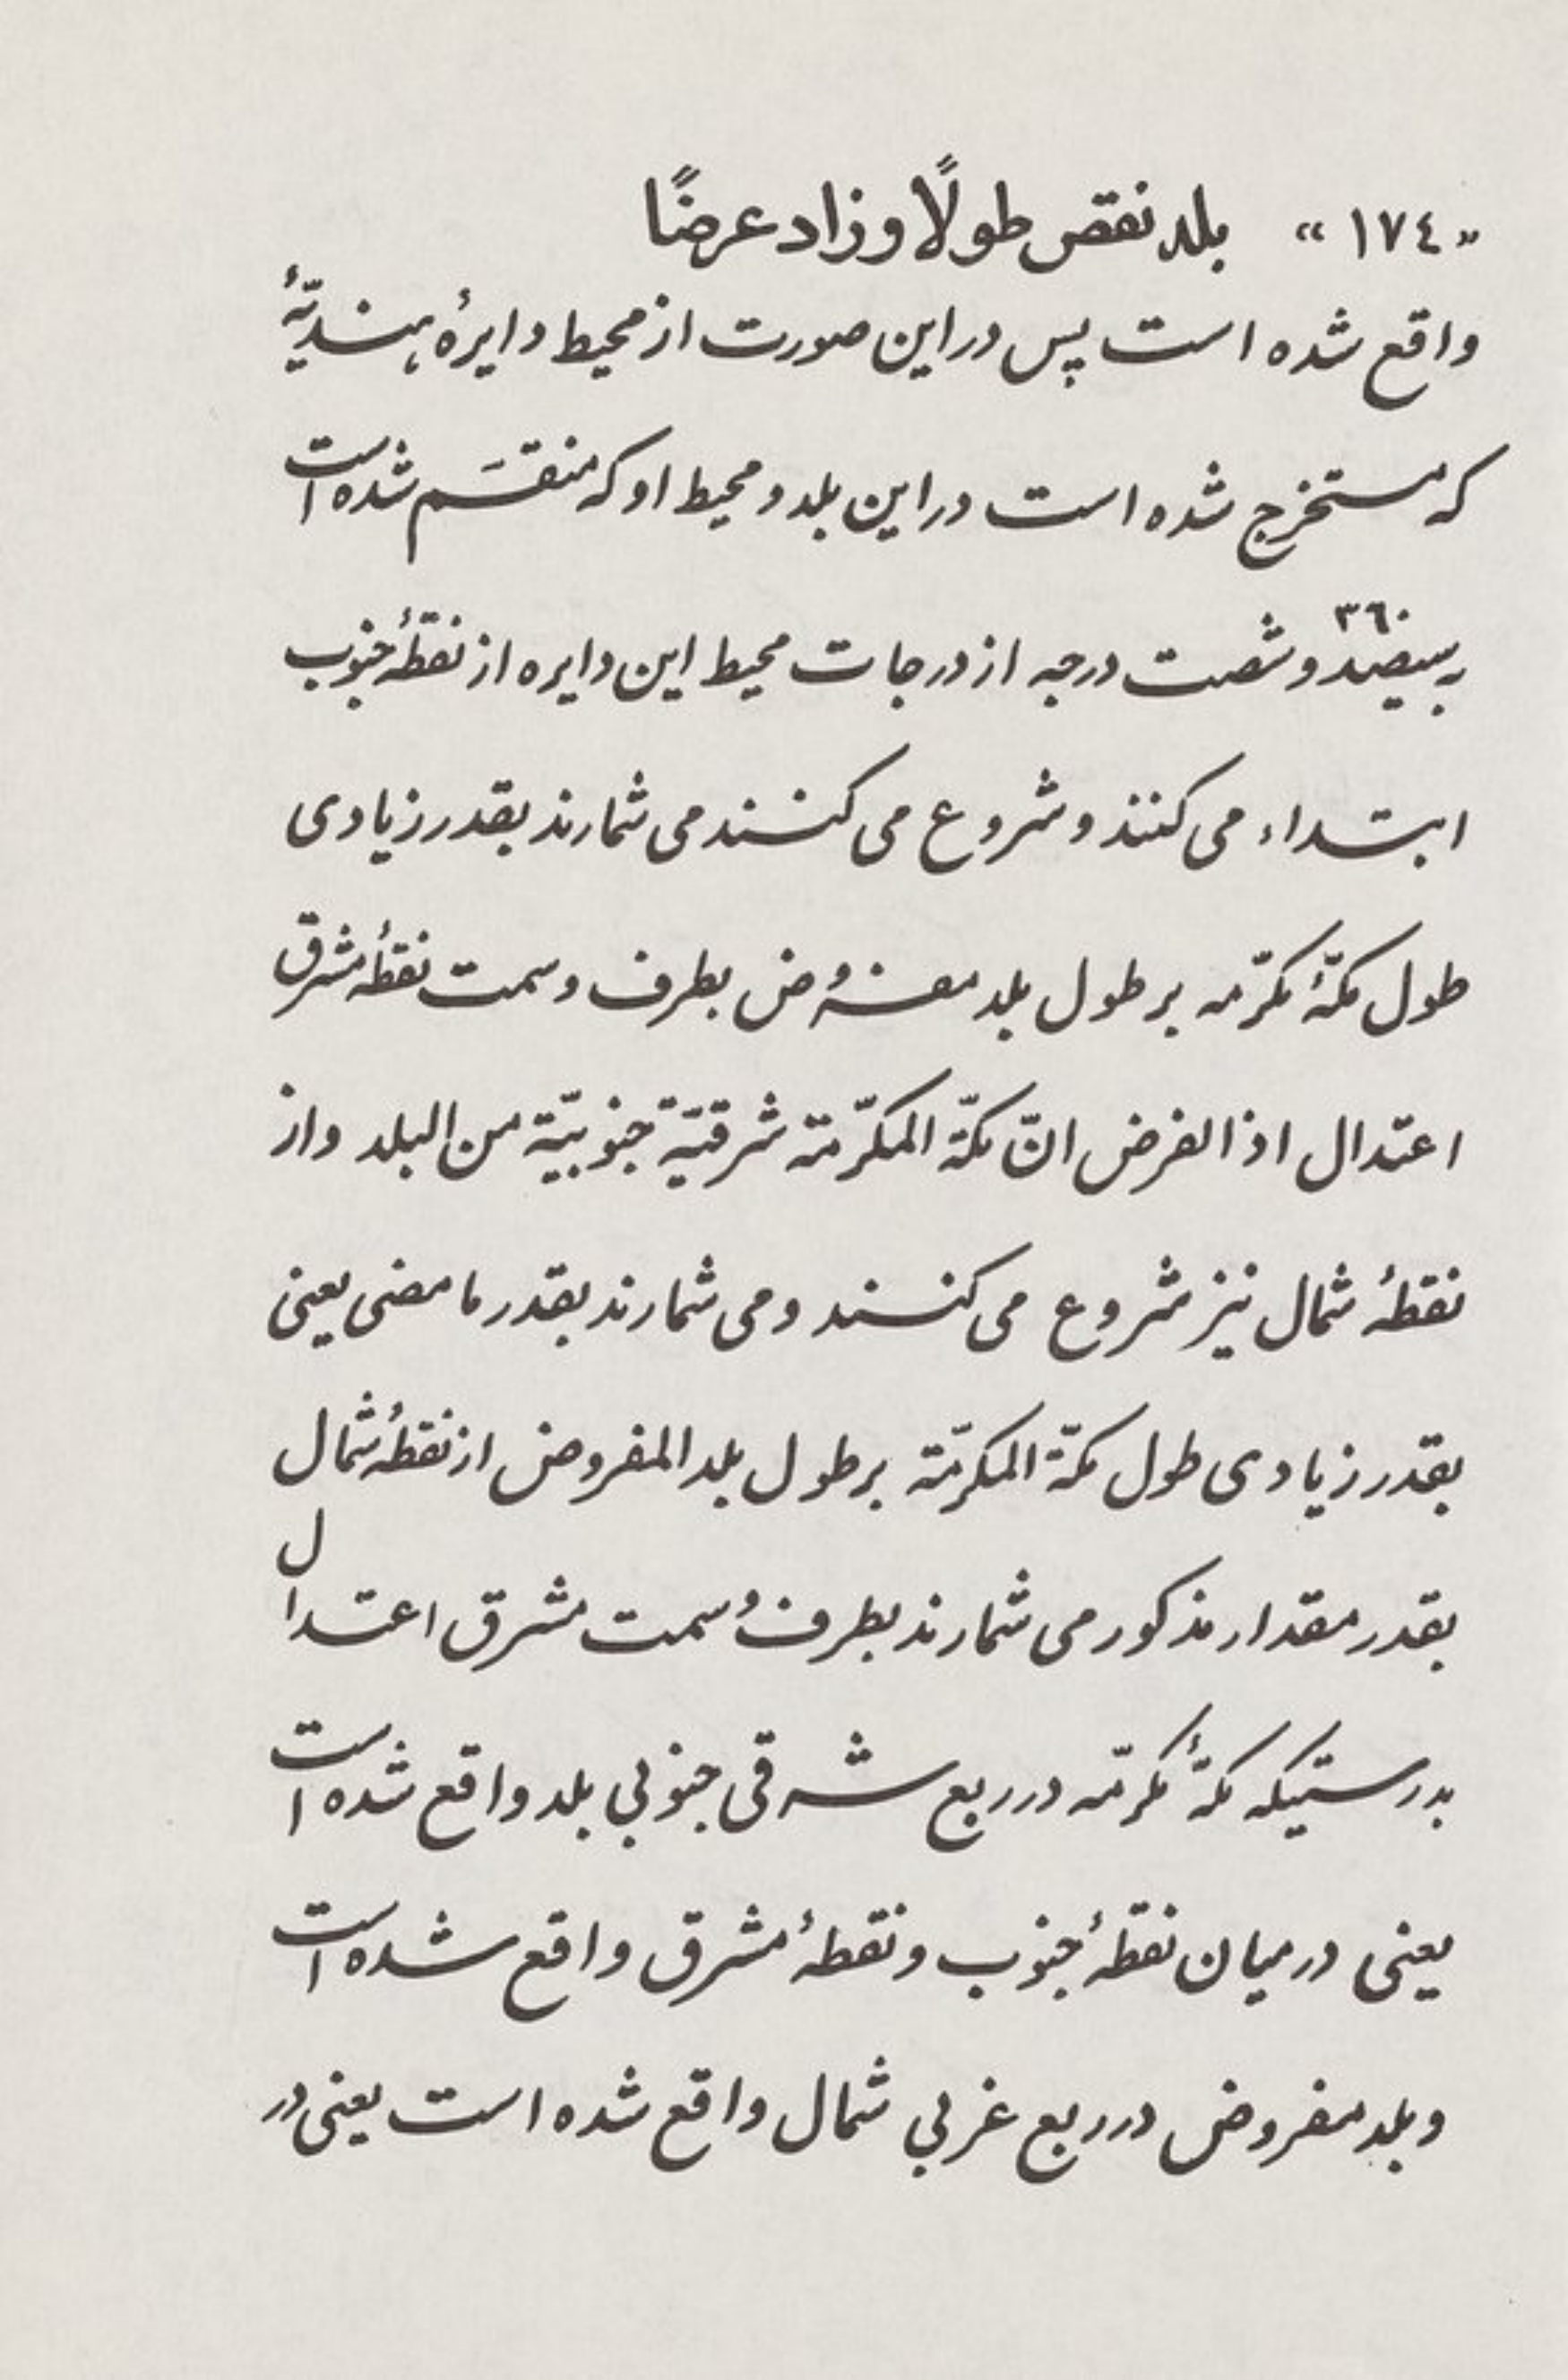 «١٧٤» بلد نقص طولًا و زاد عرضًا
واقع شده است پس در این صورت از محیط دایرهٔ هندیّهٔ
که مستخرج شده است در این بلد و محیط او که منقسَم شده است
٣٦٠
به سیصد و شصت درجه از درجات محیط این دایره از نقطهٔ جنوب
ابتداء می کنند و شروع می کنند می شمارند بقدر زیادی
طول مکّهٔ مکرّمه بر طول بلد مفروض بطرف و سمت نقطهٔ مشرق
اعتدال اذ الفرض انّ مکّة المکرّمة شرقیّة جنوبیّة من البلد و از
نقطهٔ شمال نیز شروع می کنند و می شمارند بقدر ما مضی یعنی
بقدر زیادی طول مکّة المکرمّة بر طول بلد المفروض از نقطهٔ شمال
بقدر مقدار مذکور می شمارند بطرف و سمت مشرق اعتدال
بدرستیکه مکّهٔ مکرمّه در ربع شرقی جنوبی بلد واقع شده است
یعنی در میان نقطهٔ جنوب و نقطهٔ مشرق واقع شده است
و بلد مفروض در ربع غربی شمال واقع شده است یعنی در